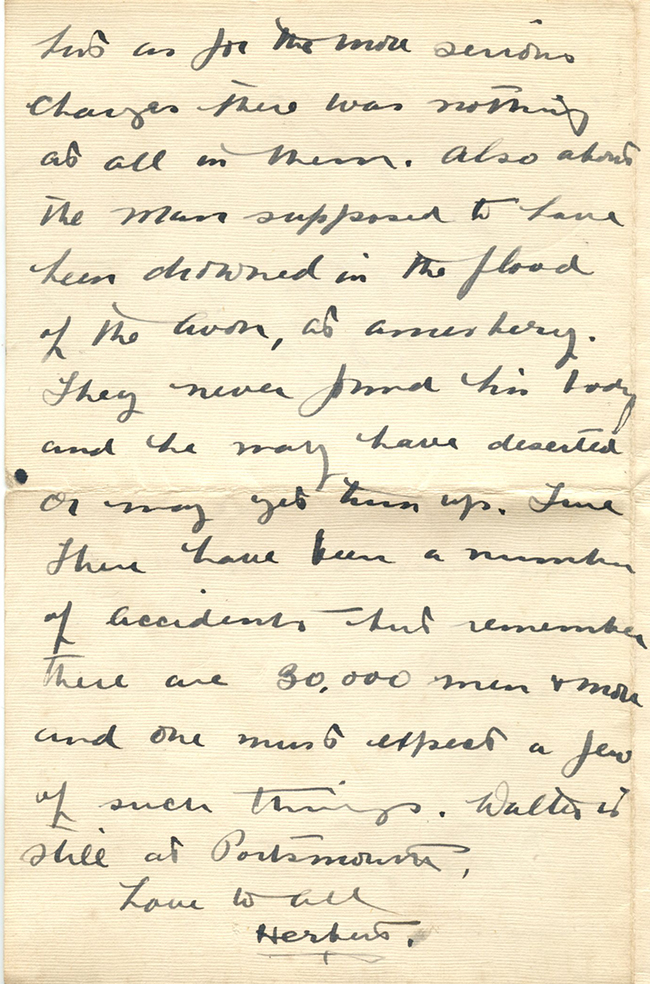 but as for the more serious
charges there was nothing
at all in them. Also about
the man supposed to have
been drowned in the flood
of the Avon, at Amesbery.
They never found his body
and he may have deserted
or may yet turn up. True
there have been a number
of accidents but remember
there are 30,000 men & more
and one must expect a few
of such things. Walter is
still at Portsmouth,
Love to all
Herbert.